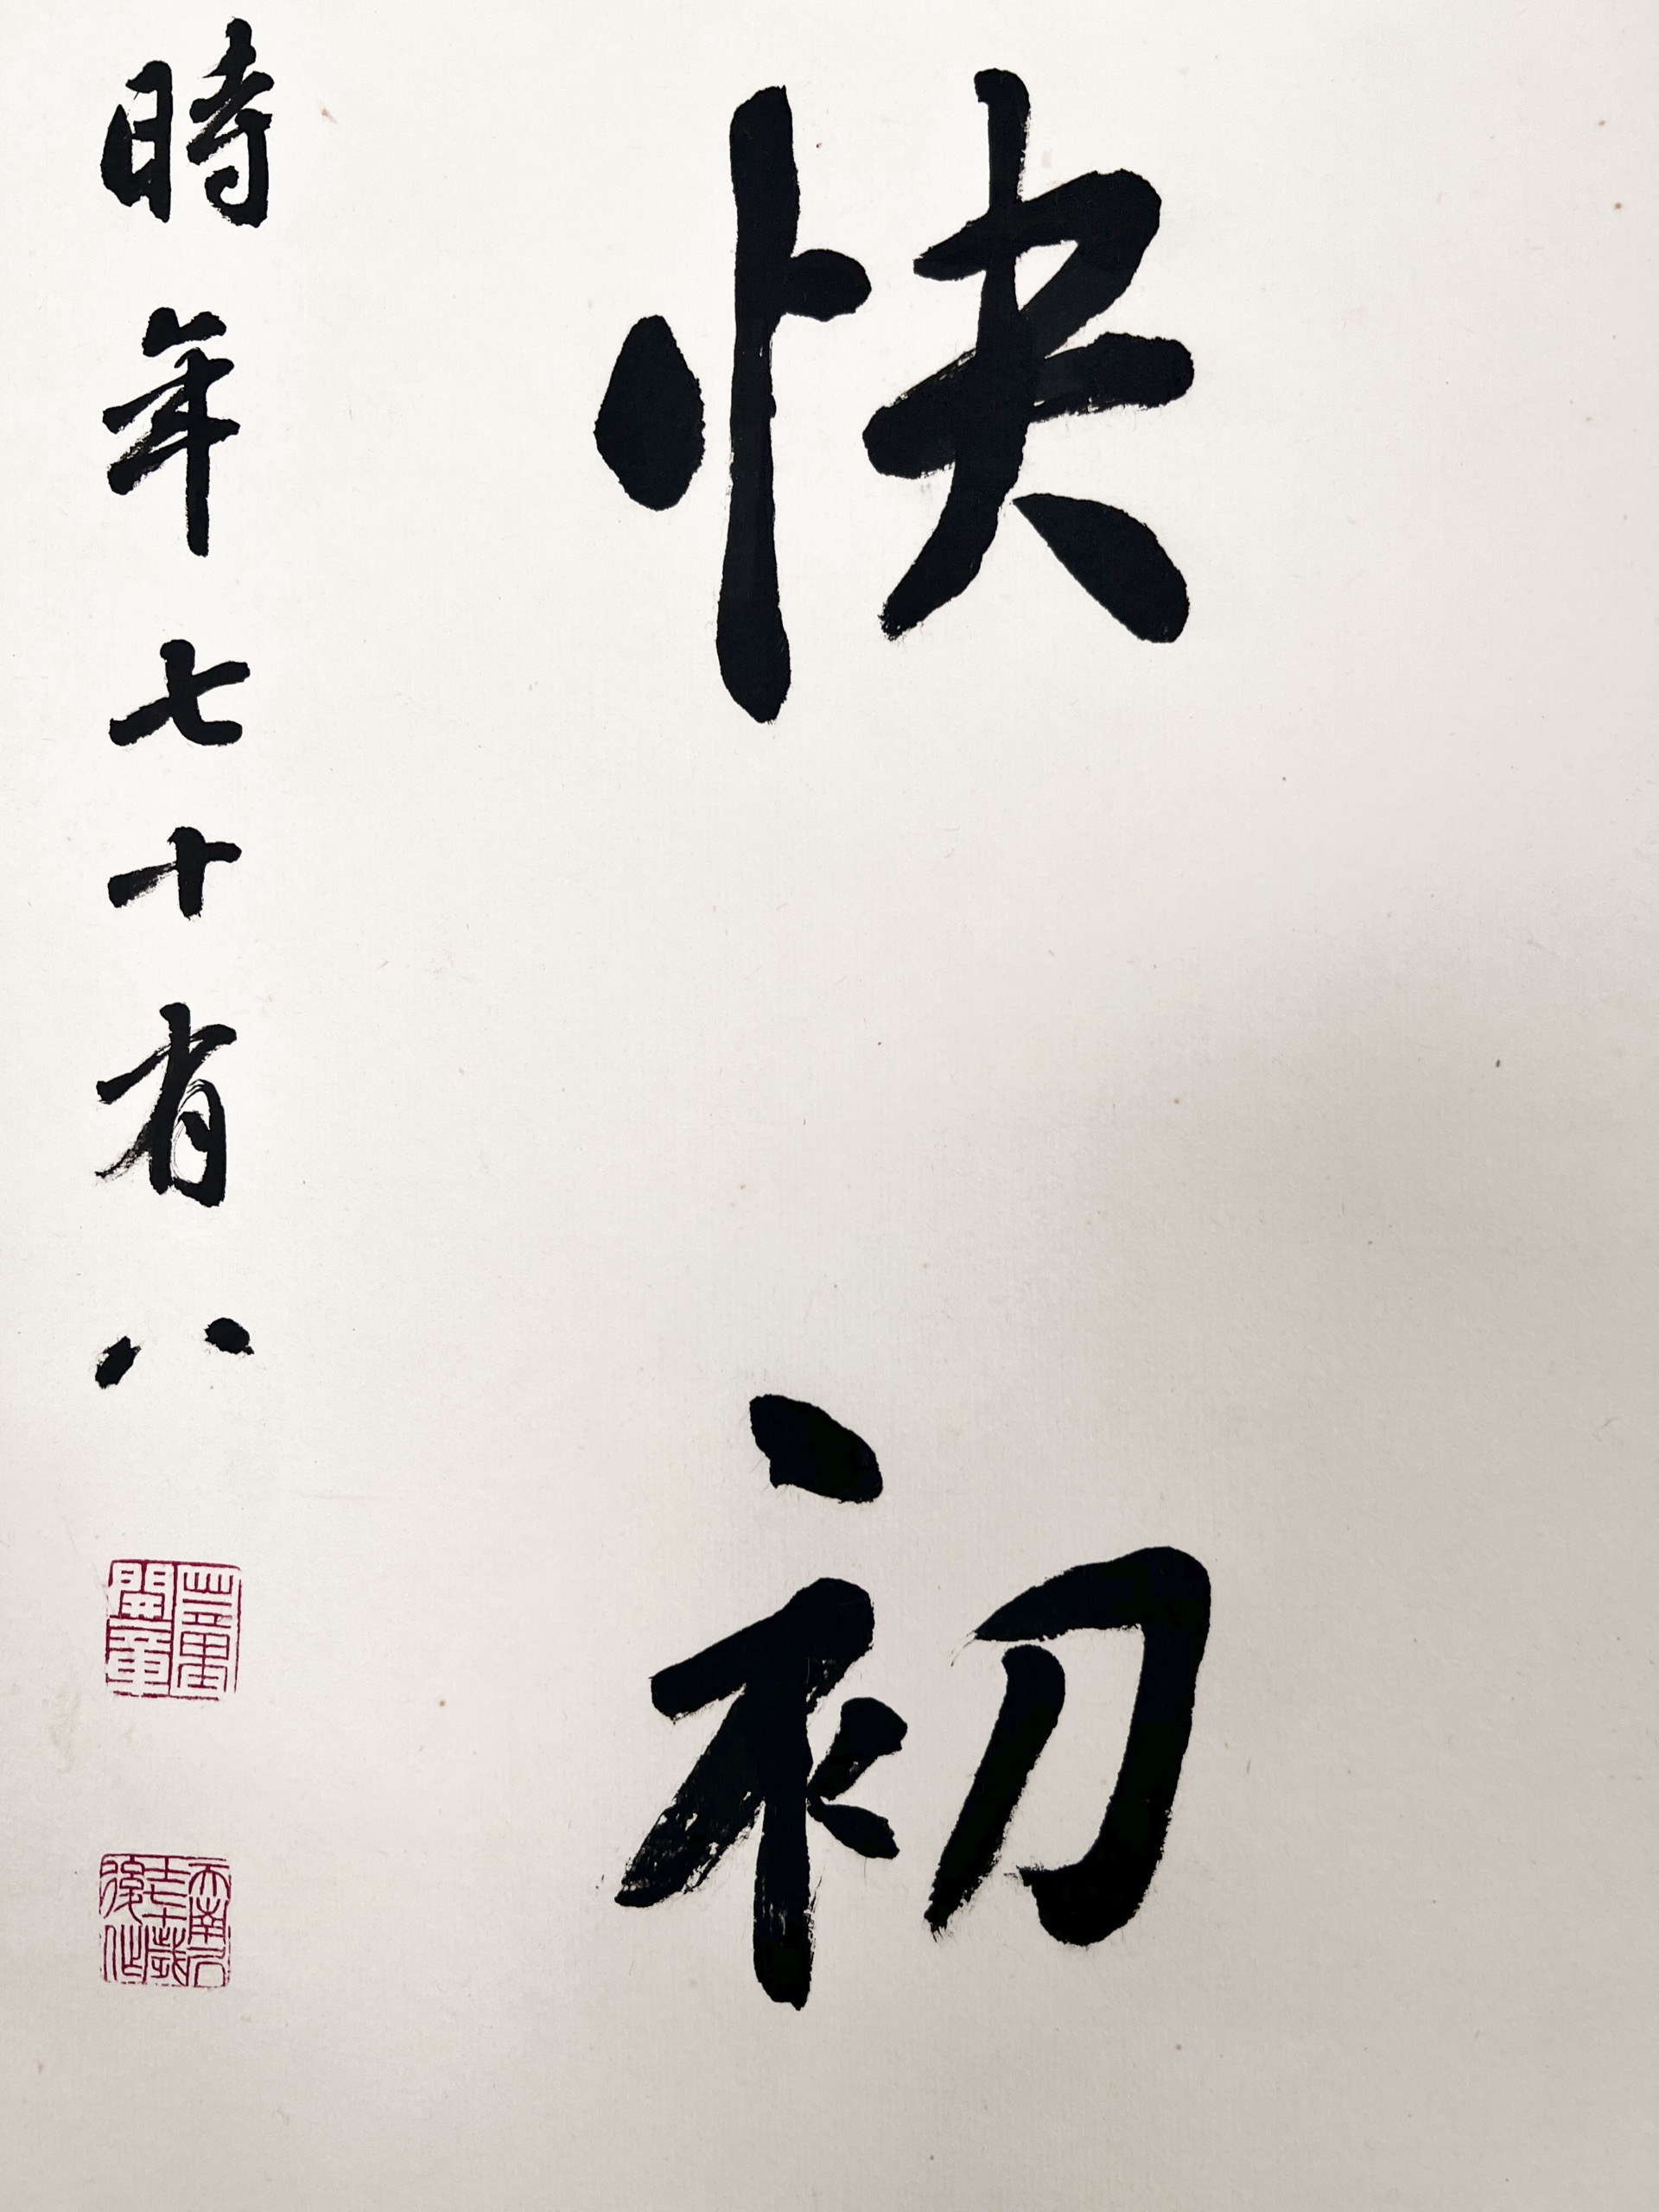 快初
時年七十有八